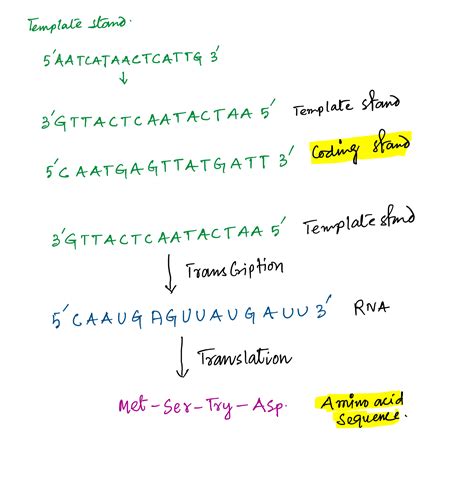 Template stand.
5'AATCATAACTCATTG 3'
3'GTTACTCAATACTAA 5' Template stand
5'CAATGAGTTATGATT 3' Coding stand
3'GTTACTCAATACTAA 5' Template stnd
Transcription
5'CAAUGAGUUAUGAUU 3' RNA
Translation
Met-Ser-Try-Asp. Amino acid
sequence.